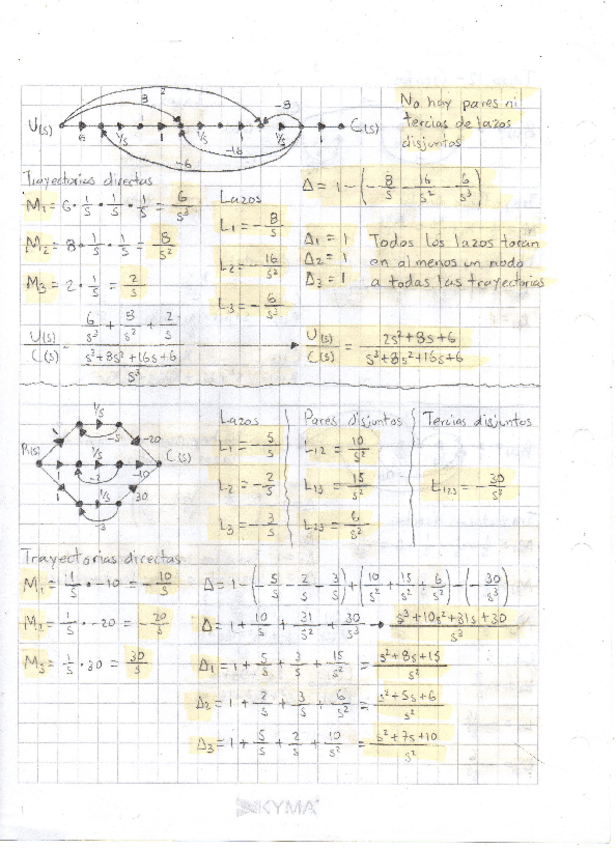 2
8
-8
U(s) 6 1/s 1 1/s 1 1/s 1 C(s)
-16
-6
No hay pares ni
tercias de lazos
disjuntos
Trayectorias directas
M₁ = 6 · 1/s · 1/s · 1/s = 6/s³
M₂ = 8 · 1/s · 1/s = 8/s²
M₃ = 2 · 1/s = 2/s
Lazos
L₁ = - 8/s
L₂ = - 16/s²
L₃ = - 6/s³
Δ = 1 - (- 8/s - 16/s² - 6/s³)
Δ₁ = 1 Todos los lazos tocan
Δ₂ = 1 en al menos un nodo
Δ₃ = 1 a todas las trayectorias
U(s)/C(s) = (6/s³ + 8/s² + 2/s) / ((s³+8s²+16s+6)/s³) → U(s)/C(s) = (2s²+8s+6)/(s³+8s²+16s+6)
1/s
-5 -20
R(s) 1 1/s -10 C(s)
-2
1 1/s 30
-3
Lazos
L₁ = - 5/s
L₂ = - 2/s
L₃ = - 3/s
Pares disjuntos
L₁₂ = 10/s²
L₁₃ = 15/s²
L₂₃ = 6/s²
Tercias disjuntos
L₁₂₃ = - 30/s³
Trayectorias directas
M₁ = 1/s · -10 = - 10/s
M₂ = 1/s · -20 = - 20/s
M₃ = 1/s · 30 = 30/s
Δ = 1 - (- 5/s - 2/s - 3/s) + (10/s² + 15/s² + 6/s²) - (- 30/s³)
Δ = 1 + 10/s + 31/s² + 30/s³ → (s³+10s²+31s+30)/s³
Δ₁ = 1 + 5/s + 3/s + 15/s² = (s²+8s+15)/s²
Δ₂ = 1 + 2/s + 3/s + 6/s² = (s²+5s+6)/s²
Δ₃ = 1 + 5/s + 2/s + 10/s² = (s²+7s+10)/s²
KYMA